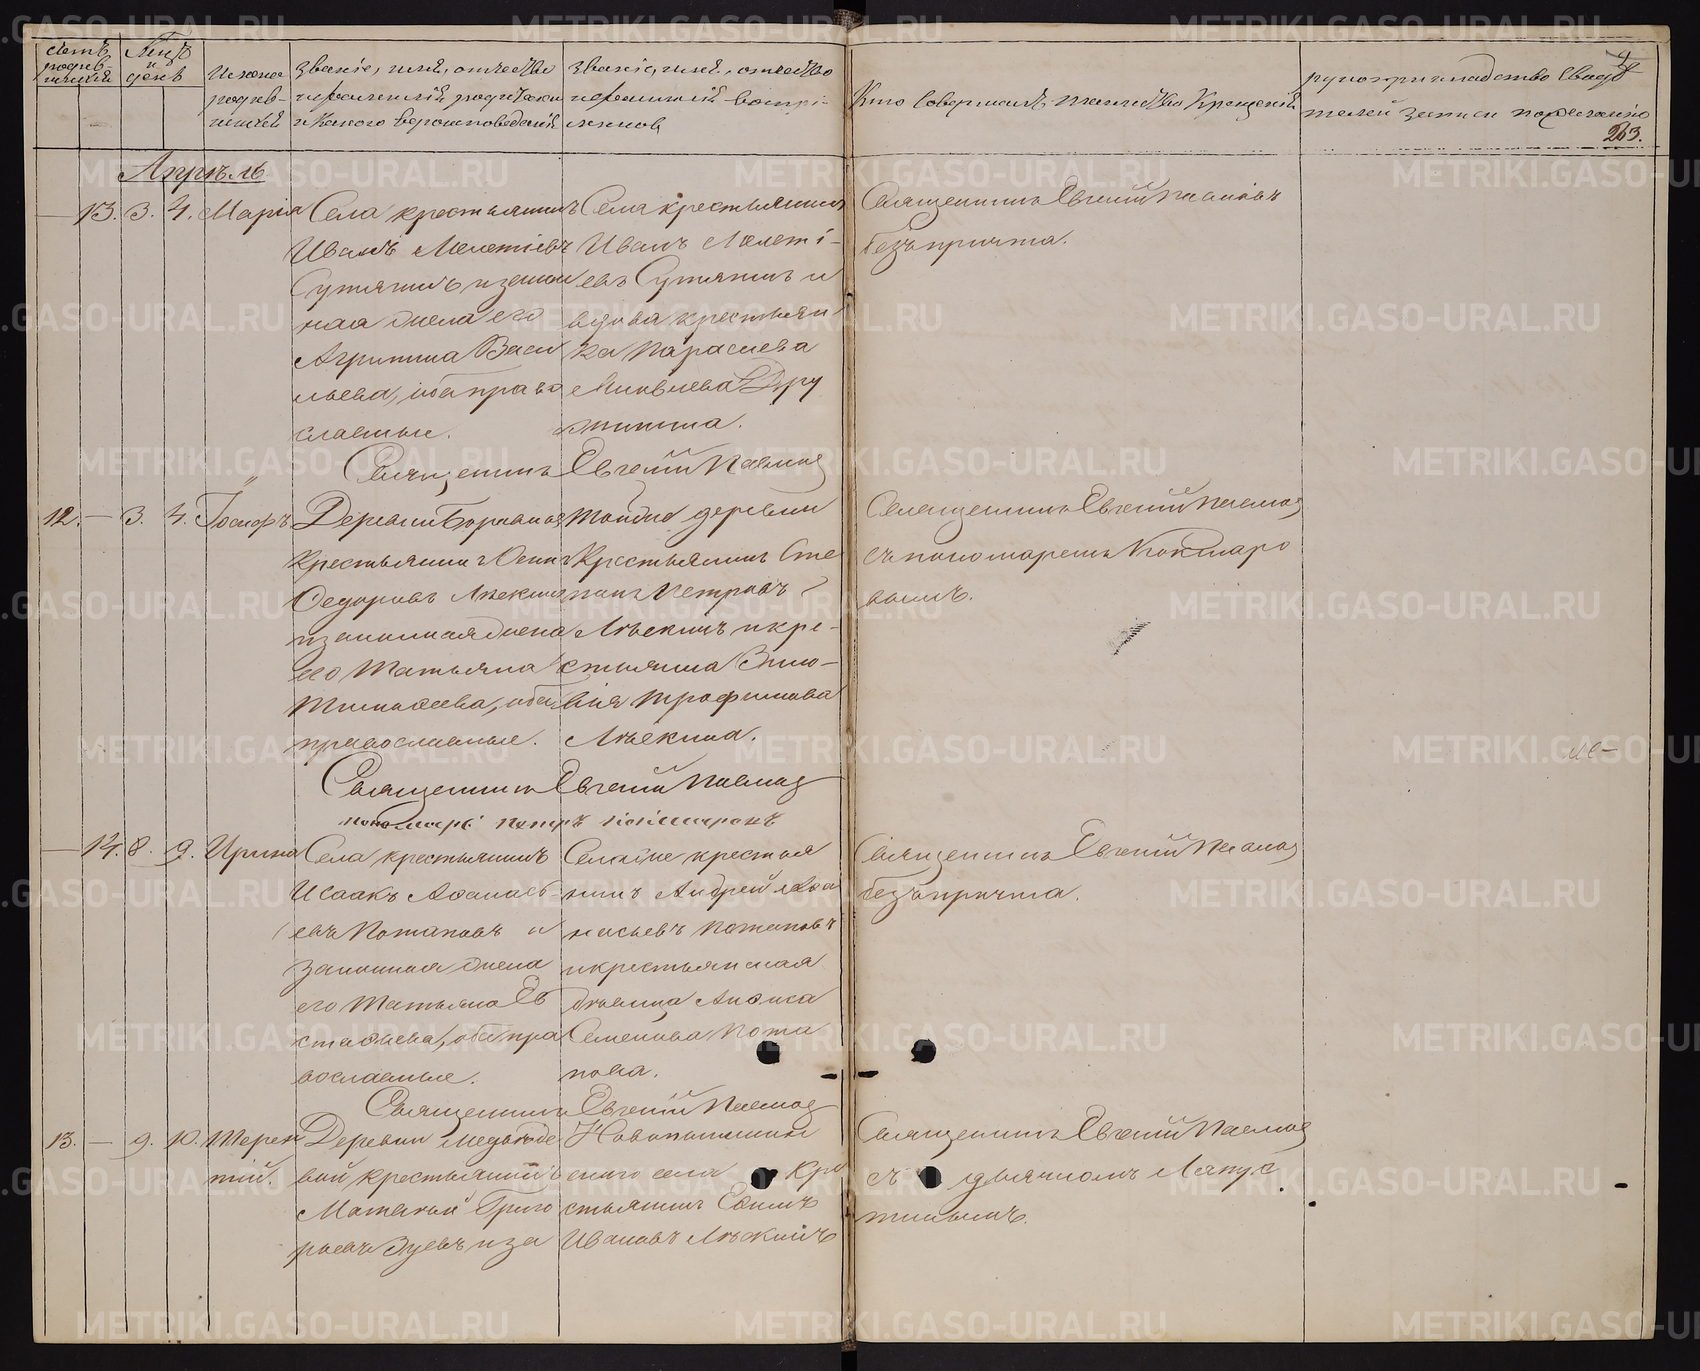 Счетъ родив-шихся
Мѣсяцъ и день
Имена родив-шихся
Званіе, имя, отчество и фамилія родителей и какого вѣроисповѣданія
Званіе, имя, отчество и фамилія воспрі-емниковъ
Кто совершалъ таинство Крещенія
рукоприкладство свидѣ-телей записи по желанію
263.
Апрѣль
13. 3. 4. Марія
Села крестьянинъ
Иванъ Мелетіевъ
Сутягинъ и закон
ная жена его
Агрипина Васи
льева, оба право
славные.
Села крестьянинъ
Иванъ Мелеті-
евъ Сутягинъ и
вдова крестьян
ка Параскева
Яковлева
Священникъ Евгеній
безъ причта.
Священникъ Евгеній
12. 3. 4. Іосифъ
Деревни
крестьянинъ Осипъ
Ѳедоровъ
и законная жена
его Татьяна
Тимоѳеева, оба
православные.
Той же деревни
Крестьянинъ Сте
панъ Петровъ
и кре-
стьянка Зино-
вія Трофимова
Священникъ Евгеній
съ пономаремъ Кокшаро
вымъ.
Священникъ Евгеній
пономарь Петръ Кокшаровъ
14. 8. 9. Ирина
Села крестьянинъ
Исаакъ Аѳанась-
евъ Потаповъ и
законная жена
его Татьяна Ев
стаѳьева, оба пра
вославные.
крестья
нинъ Андрей Аѳа
насьевъ Потаповъ
и крестьянская
дѣвица Анѳиса
Семенова Пота
пова.
Священникъ Евгеній
безъ причта.
Священникъ Евгеній
13. 9. 10. Терен
тій.
Деревни Медвѣде
вой крестьянинъ
Матвей Григо
рьевъ Зуевъ и за
Новопышмин
скаго села кре
стьянинъ Ефимъ
Ивановъ
Священникъ Евгеній
съ дьячкомъ Ляпус
тинымъ.
METRIKI.GASO-URAL.RU